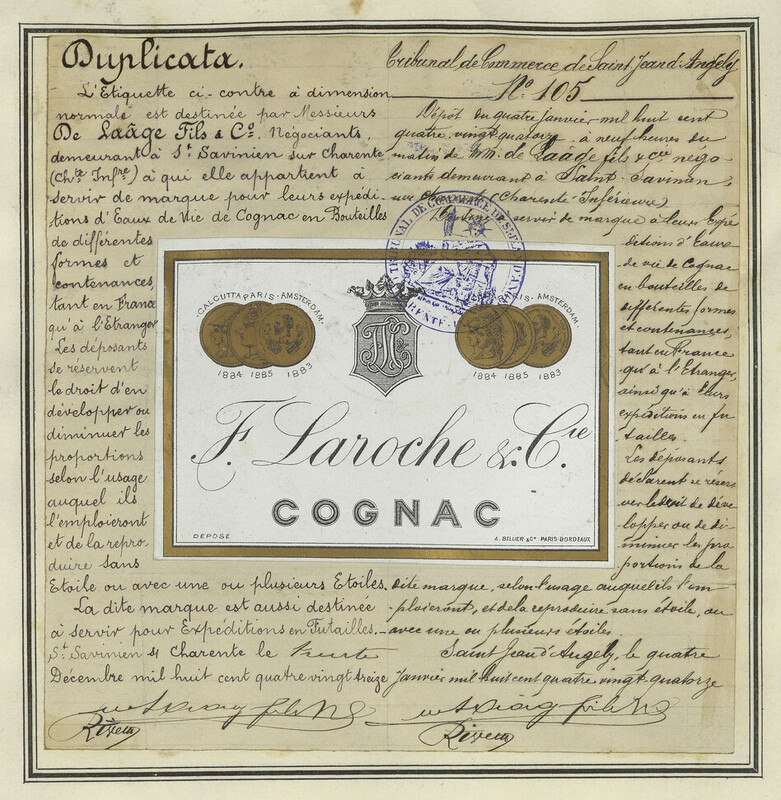 Duplicata.
L'Etiquette ci-contre à dimension
normale est destinée par Messieurs
De Laâge Fils & Cº. Négociants,
demeurant à St Savinien sur Charente
(Chte Infre) à qui elle appartient à
servir de marque pour leurs expédi-
tions d'Eaux de Vie de Cognac en Bouteilles
de différentes
formes et
contenances,
tant en France
qu'à l'Etranger
Les déposants
se reservent
le droit d'en
développer ou
diminuer les
proportions
selon l'usage
auquel ils
l'emploieront
et de la repro-
duire sans
Etoile ou avec une ou plusieurs Etoiles.
La dite marque est aussi destinée
à servir pour Expéditions en Futailles.
St Savinien s/ Charente le trente
Décembre mil huit cent quatre vingt treize
Tribunal de Commerce de Saint Jean d'Angely
Nº 105
Dépôt du quatre janvier mil huit cent
quatre vingt quatorze à neuf heures du
matin de MM. de Laâge fils & cie négo-
ciants demeurant à Saint-Savinien,
sur Charente (Charente Inférieure)
servir de marque à leurs Expé
ditions d'Eaux
de vie de Cognac
en bouteilles de
différentes formes
et contenances,
tant en France
qu'à l'Etranger,
ainsi qu'à leurs
expéditions en fu
tailles.
Les déposants
déclarent se réser
ver le droit de déve
lopper ou de di-
minuer les pro
portions de la
dite marque, selon l'usage auquel ils l'em
-ploieront, et de la reproduire sans étoile, ou
avec une ou plusieurs étoiles
Saint Jean d'Angely, le quatre
Janvier mil huit cent quatre vingt-quatorze
TRIBUNAL DE COMMERCE DE ST JEAN D'ANGELY
CALCUTTA PARIS - AMSTERDAM.
1884 1885 1883
PARIS - AMSTERDAM.
1884 1885 1883
F. Laroche & Cie.
COGNAC
DÉPOSÉ
A. BELLIER & Cº PARIS-BORDEAUX